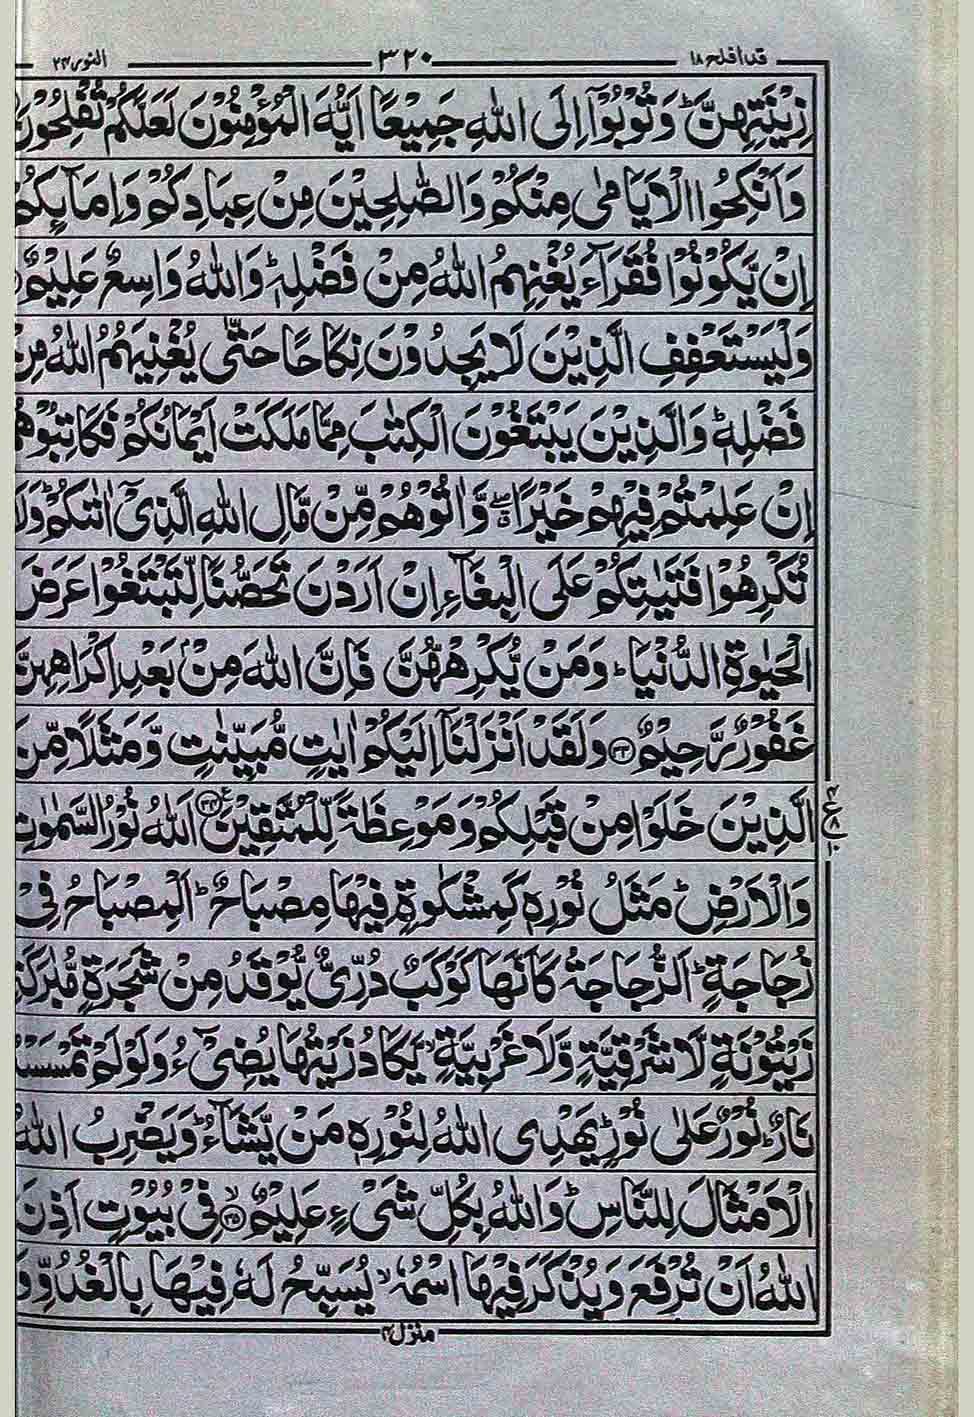 قدافلح ۱۸ ۳۲۰ النور ۲۴
زِيْنَتِهِنَّ ؕ وَتُوْبُوْۤا اِلَى اللّٰهِ جَمِيْعًا اَيُّهَ الْمُؤْمِنُوْنَ لَعَلَّكُمْ تُفْلِحُوْنَ
وَاَنْكِحُوا الْاَيَامٰى مِنْكُمْ وَالصّٰلِحِيْنَ مِنْ عِبَادِكُمْ وَاِمَآىِٕكُمْ
اِنْ يَّكُوْنُوْا فُقَرَآءَ يُغْنِهِمُ اللّٰهُ مِنْ فَضْلِهٖ ؕ وَاللّٰهُ وَاسِعٌ عَلِيْمٌ
وَلْيَسْتَعْفِفِ الَّذِيْنَ لَا يَجِدُوْنَ نِكَاحًا حَتّٰى يُغْنِيَهُمُ اللّٰهُ مِنْ
فَضْلِهٖ ؕ وَالَّذِيْنَ يَبْتَغُوْنَ الْكِتٰبَ مِمَّا مَلَكَتْ اَيْمَانُكُمْ فَكَاتِبُوْهُمْ
اِنْ عَلِمْتُمْ فِيْهِمْ خَيْرًا ۖۗ وَّاٰتُوْهُمْ مِّنْ مَّالِ اللّٰهِ الَّذِيْۤ اٰتٰىكُمْ ؕ وَلَا
تُكْرِهُوْا فَتَيٰتِكُمْ عَلَى الْبِغَآءِ اِنْ اَرَدْنَ تَحَصُّنًا لِّتَبْتَغُوْا عَرَضَ
الْحَيٰوةِ الدُّنْيَا ؕ وَمَنْ يُّكْرِهْهُّنَّ فَاِنَّ اللّٰهَ مِنْۢ بَعْدِ اِكْرَاهِهِنَّ
غَفُوْرٌ رَّحِيْمٌ ۳۳ وَلَقَدْ اَنْزَلْنَاۤ اِلَيْكُمْ اٰيٰتٍ مُّبَيِّنٰتٍ وَّمَثَلًا مِّنَ
الَّذِيْنَ خَلَوْا مِنْ قَبْلِكُمْ وَمَوْعِظَةً لِّلْمُتَّقِيْنَ ۳۴ ع اَللّٰهُ نُوْرُ السَّمٰوٰتِ
وَالْاَرْضِ ؕ مَثَلُ نُوْرِهٖ كَمِشْكٰوةٍ فِيْهَا مِصْبَاحٌ ؕ اَلْمِصْبَاحُ فِيْ
زُجَاجَةٍ ؕ اَلزُّجَاجَةُ كَاَنَّهَا كَوْكَبٌ دُرِّيٌّ يُّوْقَدُ مِنْ شَجَرَةٍ مُّبٰرَكَةٍ
زَيْتُوْنَةٍ لَّا شَرْقِيَّةٍ وَّلَا غَرْبِيَّةٍ ۙ يَّكَادُ زَيْتُهَا يُضِيْٓءُ وَلَوْ لَمْ تَمْسَسْهُ
نَارٌ ؕ نُوْرٌ عَلٰى نُوْرٍ ؕ يَهْدِى اللّٰهُ لِنُوْرِهٖ مَنْ يَّشَآءُ ؕ وَيَضْرِبُ اللّٰهُ
الْاَمْثَالَ لِلنَّاسِ ؕ وَاللّٰهُ بِكُلِّ شَىْءٍ عَلِيْمٌ ۙ ۳۵ فِيْ بُيُوْتٍ اَذِنَ
اللّٰهُ اَنْ تُرْفَعَ وَيُذْكَرَ فِيْهَا اسْمُهٗ ۙ يُسَبِّحُ لَهٗ فِيْهَا بِالْغُدُوِّ وَ
منزل ۴